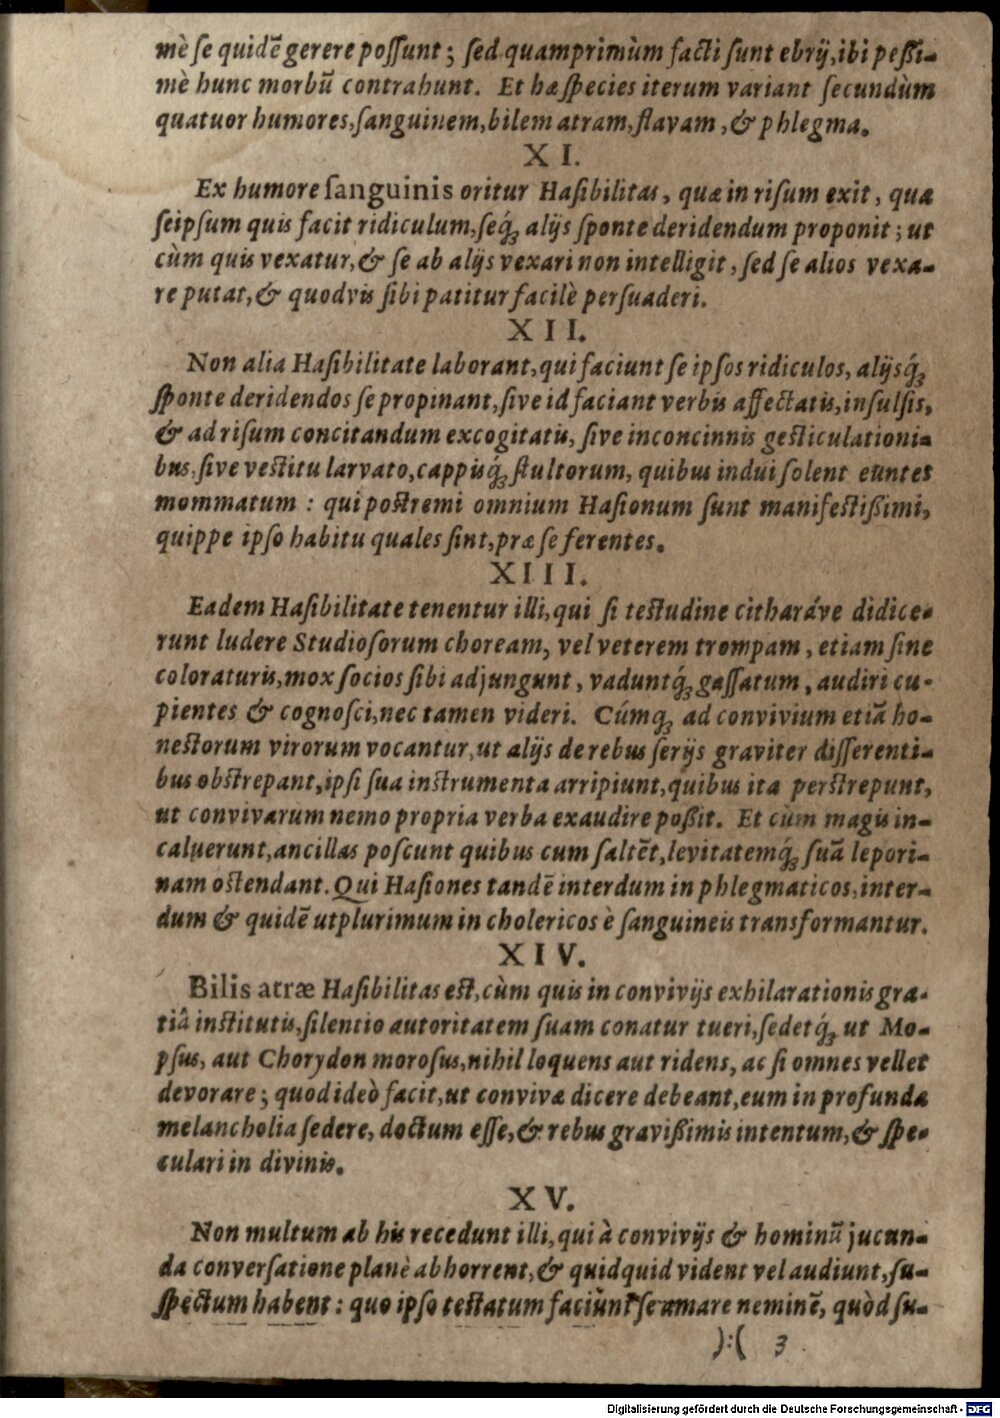 mè ſe quidē gerere poſſunt; ſed quamprimùm facti ſunt ebrij, ibi peßi-
mè hunc morbū contrahunt. Et hæ ſpecies iterum variant ſecundùm
quatuor humores, ſanguinem, bilem atram, flavam, & phlegma.
XI.
Ex humore ſanguinis oritur Haſibilitas, quæ in riſum exit, qua
ſeipſum quis facit ridiculum, ſeq́ꝫ alijs ſponte deridendum proponit; ut
cùm quis vexatur, & ſe ab alijs vexari non intelligit, ſed ſe alios vexa-
re putat, & quodvis ſibi patitur facilè perſuaderi.
XII.
Non alia Haſibilitate laborant, qui faciunt ſe ipſos ridiculos, alijsq́ꝫ
ſponte deridendos ſe propinant, ſive id faciant verbis affectatis, inſulſis,
& ad riſum concitandum excogitatis, ſive inconcinnis geſticulationi-
bus, ſive veſtitu larvato, cappisq́ꝫ ſtultorum, quibus indui ſolent euntes
mommatum : qui poſtremi omnium Haſionum ſunt manifeſtißimi,
quippe ipſo habitu quales ſint, præ ſe ferentes.
XIII.
Eadem Haſibilitate tenentur illi, qui ſi teſtudine citharáve didice-
runt ludere Studioſorum choream, vel veterem trompam, etiam ſine
coloraturis, mox ſocios ſibi adjungunt, vaduntq́ꝫ gaſſatum, audiri cu-
pientes & cognoſci, nec tamen videri. Cúmqꝫ ad convivium etiā ho-
neſtorum virorum vocantur, ut alijs de rebus ſerijs graviter diſſerenti-
bus obſtrepant, ipſi ſua inſtrumenta arripiunt, quibus ita perſtrepunt,
ut convivarum nemo propria verba exaudire poßit. Et cùm magis in-
caluerunt, ancillas poſcunt quibus cum ſaltēt, levitatemq́ꝫ ſuā lepori-
nam oſtendant. Qui Haſiones tandē interdum in phlegmaticos, inter-
dum & quidē utplurimum in cholericos è ſanguineis transformantur.
XIV.
Bilis atræ Haſibilitas eſt, cùm quis in convivijs exhilarationis gra-
tiâ inſtitutis, ſilentio autoritatem ſuam conatur tueri, ſedetq́ꝫ ut Mo-
pſus, aut Chorydon moroſus, nihil loquens aut ridens, ac ſi omnes vellet
devorare; quod ideò facit, ut convivæ dicere debeant, eum in profunda
melancholia ſedere, doctum eſſe, & rebus gravißimis intentum, & ſpe-
culari in divinis.
XV.
Non multum ab his recedunt illi, qui à convivijs & hominū jucun-
da converſatione planè abhorrent, & quidquid vident vel audiunt, ſu-
ſpectum habent : quo ipſo teſtatum faciunt ſe amare neminē, quòd ſu-
):( 3
Digitalisierung gefördert durch die Deutsche Forschungsgemeinschaft - DFG